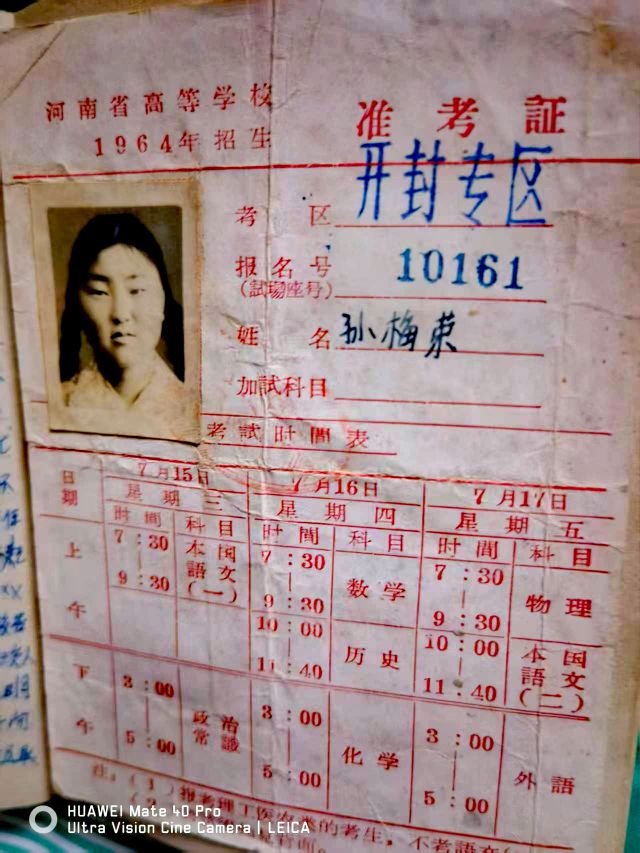 河南省高等学校
1964年招生
准考証
考区 开封专区
报名号 10161
(試場座号)
姓名 孙梅荣
加試科目
考試时間表
日期 7月15日 7月16日 7月17日
星期三 星期四 星期五
时間 科目 时間 科目 时間 科目
上午 7:30—9:30 本国語文(一) 7:30—9:30 数学 7:30—9:30 物理
10:00—11:40 历史 10:00—11:40 本国語文(二)
下午 3:00—5:00 政治常識 3:00—5:00 化学 3:00—5:00 外語
注:(1)报考理工医农类的考生,不考語文(
HUAWEI Mate 40 Pro
Ultra Vision Cine Camera | LEICA